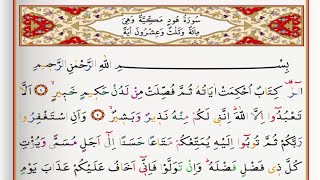 سُورَةُ هُودٍ مَكِّيَّةٌ وَهِيَ
مِائَةٌ وَثَلٰثٌ وَعِشْرُونَ اٰيَةً
بِسْمِ اللّٰهِ الرَّحْمٰنِ الرَّحِيمِ
الٓرٰ كِتَابٌ اُحْكِمَتْ اٰيَاتُهُ ثُمَّ فُصِّلَتْ مِنْ لَدُنْ حَكِيمٍ خَبِيرٍ ۙ اَلَّا
تَعْبُدُٓوا اِلَّا اللّٰهَ اِنَّنِي لَكُمْ مِنْهُ نَذِيرٌ وَبَشِيرٌ ۙ وَاَنِ اسْتَغْفِرُوا
رَبَّكُمْ ثُمَّ تُوبُٓوا اِلَيْهِ يُمَتِّعْكُمْ مَتَاعًا حَسَنًا اِلٰٓى اَجَلٍ مُسَمًّى وَيُؤْتِ
كُلَّ ذِي فَضْلٍ فَضْلَهُ وَاِنْ تَوَلَّوْا فَاِنِّٓي اَخَافُ عَلَيْكُمْ عَذَابَ يَوْمٍ